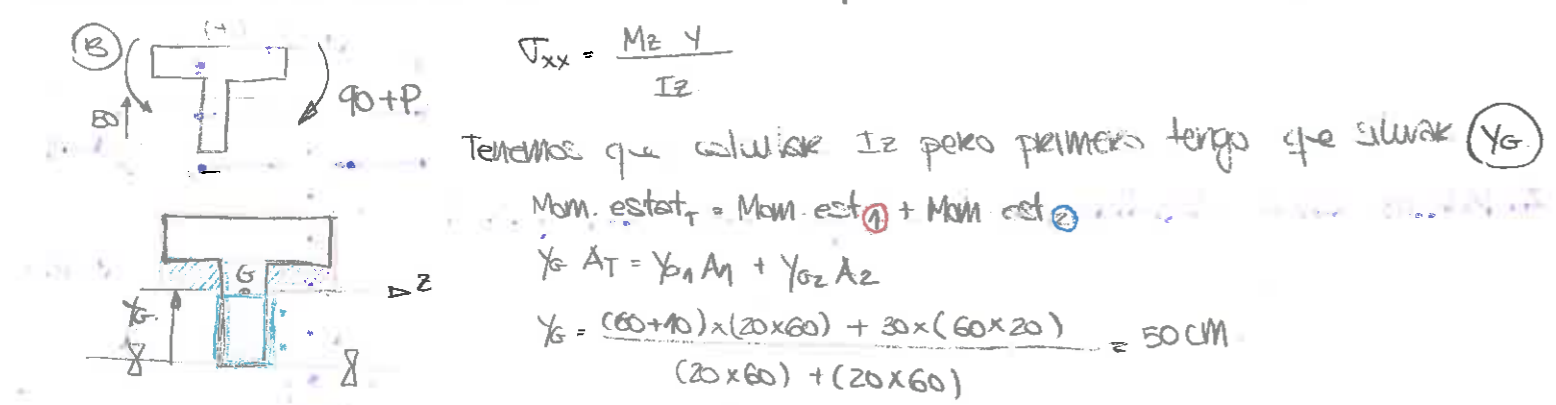 (+)
B
80
90+P
σxx = Mz Y / Iz
Tenemos que calcular Iz pero primero tengo que situar YG
Mom. estat_T = Mom. est 1 + Mom est 2
YG AT = YG1 A1 + YG2 A2
YG = (60+10)x(20x60) + 30x(60x20) / (20x60) + (20x60) = 50 CM
G
z
YG